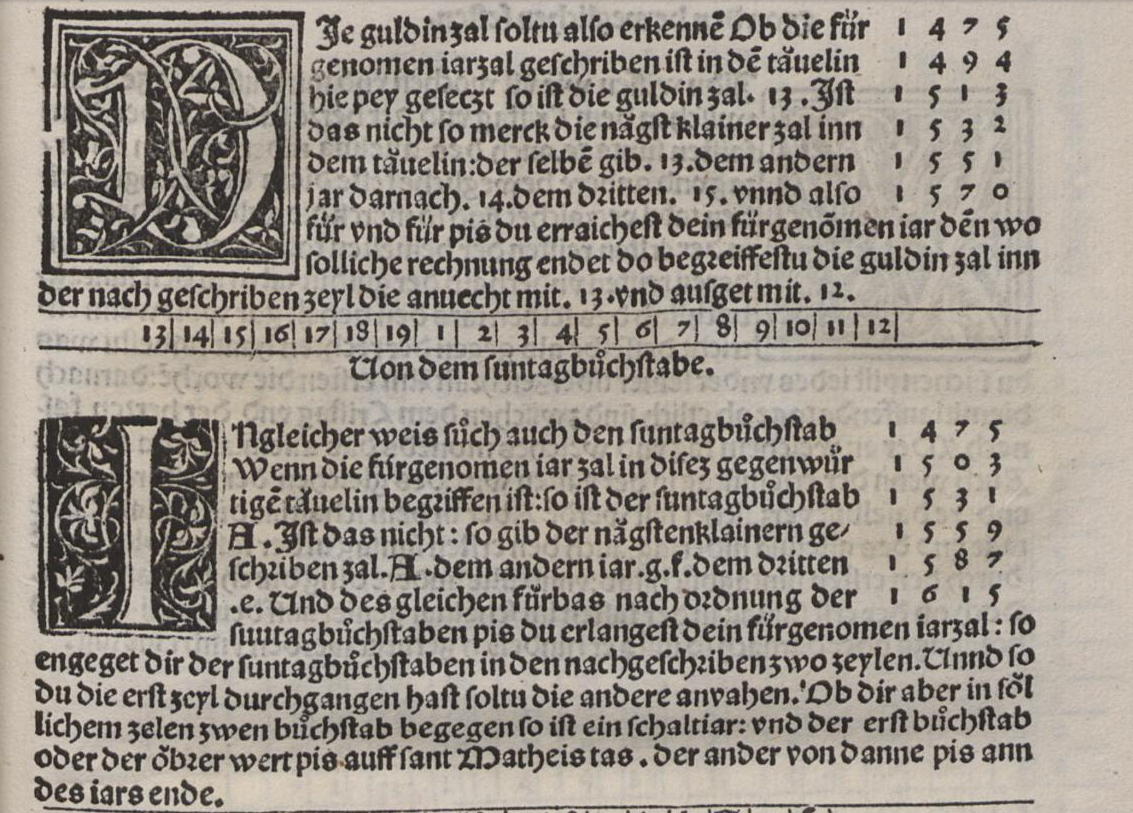 DJe guldin zal soltu also erkennē Ob die für 1 4 7 5
genomen iarzal geschriben ist in dē täuelin 1 4 9 4
hie pey geseczt so ist die guldin zal. 13. Jst 1 5 1 3
das nicht so merck die nägst klainer zal inn 1 5 3 2
dem täuelin: der selbē gib. 13. dem andern 1 5 5 1
jar darnach. 14. dem dritten. 15. vnnd also 1 5 7 0
für vnd für pis du erraichest dein fürgenōmen iar dēn wo
solliche rechnung endet do begreiffestu die guldin zal inn
der nach geschriben zeyl die anuecht mit. 13. vnd ausget mit. 12.
13| 14| 15| 16| 17| 18| 19| 1| 2| 3| 4| 5| 6| 7| 8| 9| 10| 11| 12|
Von dem suntagbůchstabe.
INgleicher weis sůch auch den suntagbůchstab 1 4 7 5
Wenn die fürgenomen iar zal in disez gegenwür 1 5 0 3
tigē täuelin begriffen ist: so ist der suntagbůchstab 1 5 3 1
A. Jst das nicht: so gib der nägstenklainern ge⸗ 1 5 5 9
schriben zal. A. dem andern iar. g. f. dem dritten 1 5 8 7
.e. Vnd des gleichen fürbas nach ordnung der 1 6 1 5
suutagbůchstaben pis du erlangest dein fürgenomen iarzal: so
engeget dir der suntagbůchstaben in den nachgeschriben zwo zeylen. Vnnd so
du die erst zcyl durchgangen hast soltu die andere anvahen. Ob dir aber in söl
lichem zelen zwen bůchstab begegen so ist ein schaltiar: vnd der erst bůchstab
oder der öbrer wert pis auff sant Matheis tas. der ander von danne pis ann
des iars ende.